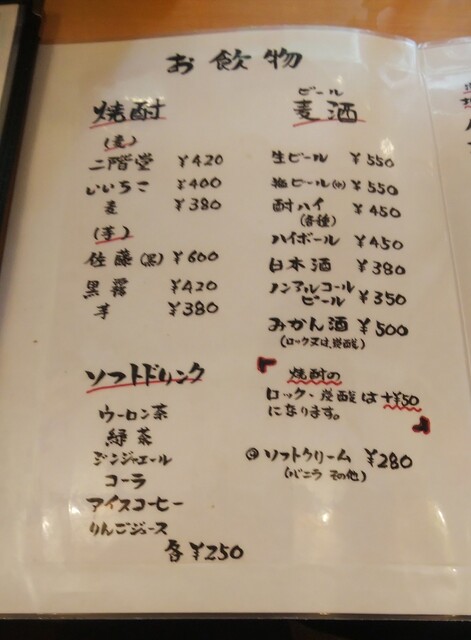 お飲物
焼酎
(麦)
二階堂 ¥420
いいちこ ¥400
麦 ¥380
(芋)
佐藤(黒) ¥600
黒霧 ¥420
芋 ¥380
ソフトドリンク
ウーロン茶
緑茶
ジンジャエール
コーラ
アイスコーヒー
りんごジュース
各¥250
ビール
麦酒
生ビール ¥550
瓶ビール(中) ¥550
酎ハイ ¥450
(各種)
ハイボール ¥450
日本酒 ¥380
ノンアルコール
ビール ¥350
みかん酒 ¥500
(ロック又は、炭酸)
「焼酎の
ロック・炭酸は+¥50
になります。」
◎ソフトクリーム ¥280
(バニラ その他)